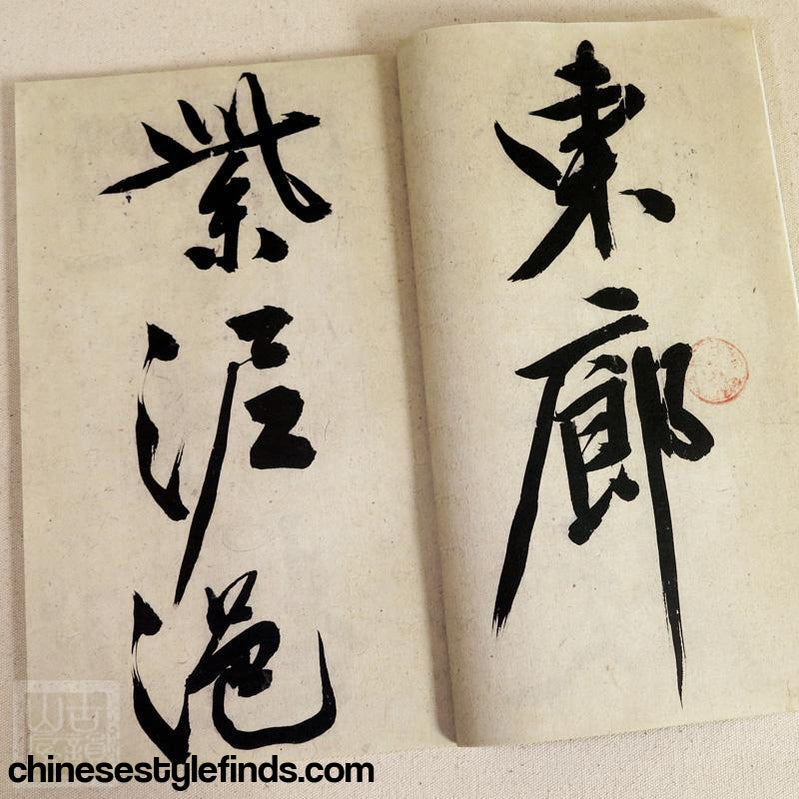 東廊
紫泥浥
chinesestylefinds.com